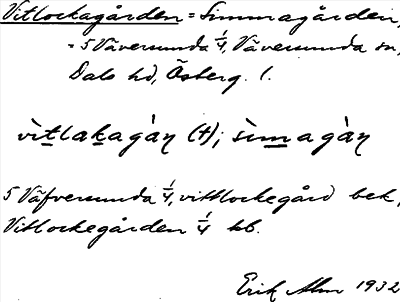 Vitlockagården = Simmagården,
= 5 Väversunda 1/4, Väversunda sn,
Dals hd, Österg. l.
vìtlakagàn (†); sìmagàn
5 Väfversunda 1/4, vittlockegård bek.
Vitlockegården 1/4 kb.
Erik Alm 1932